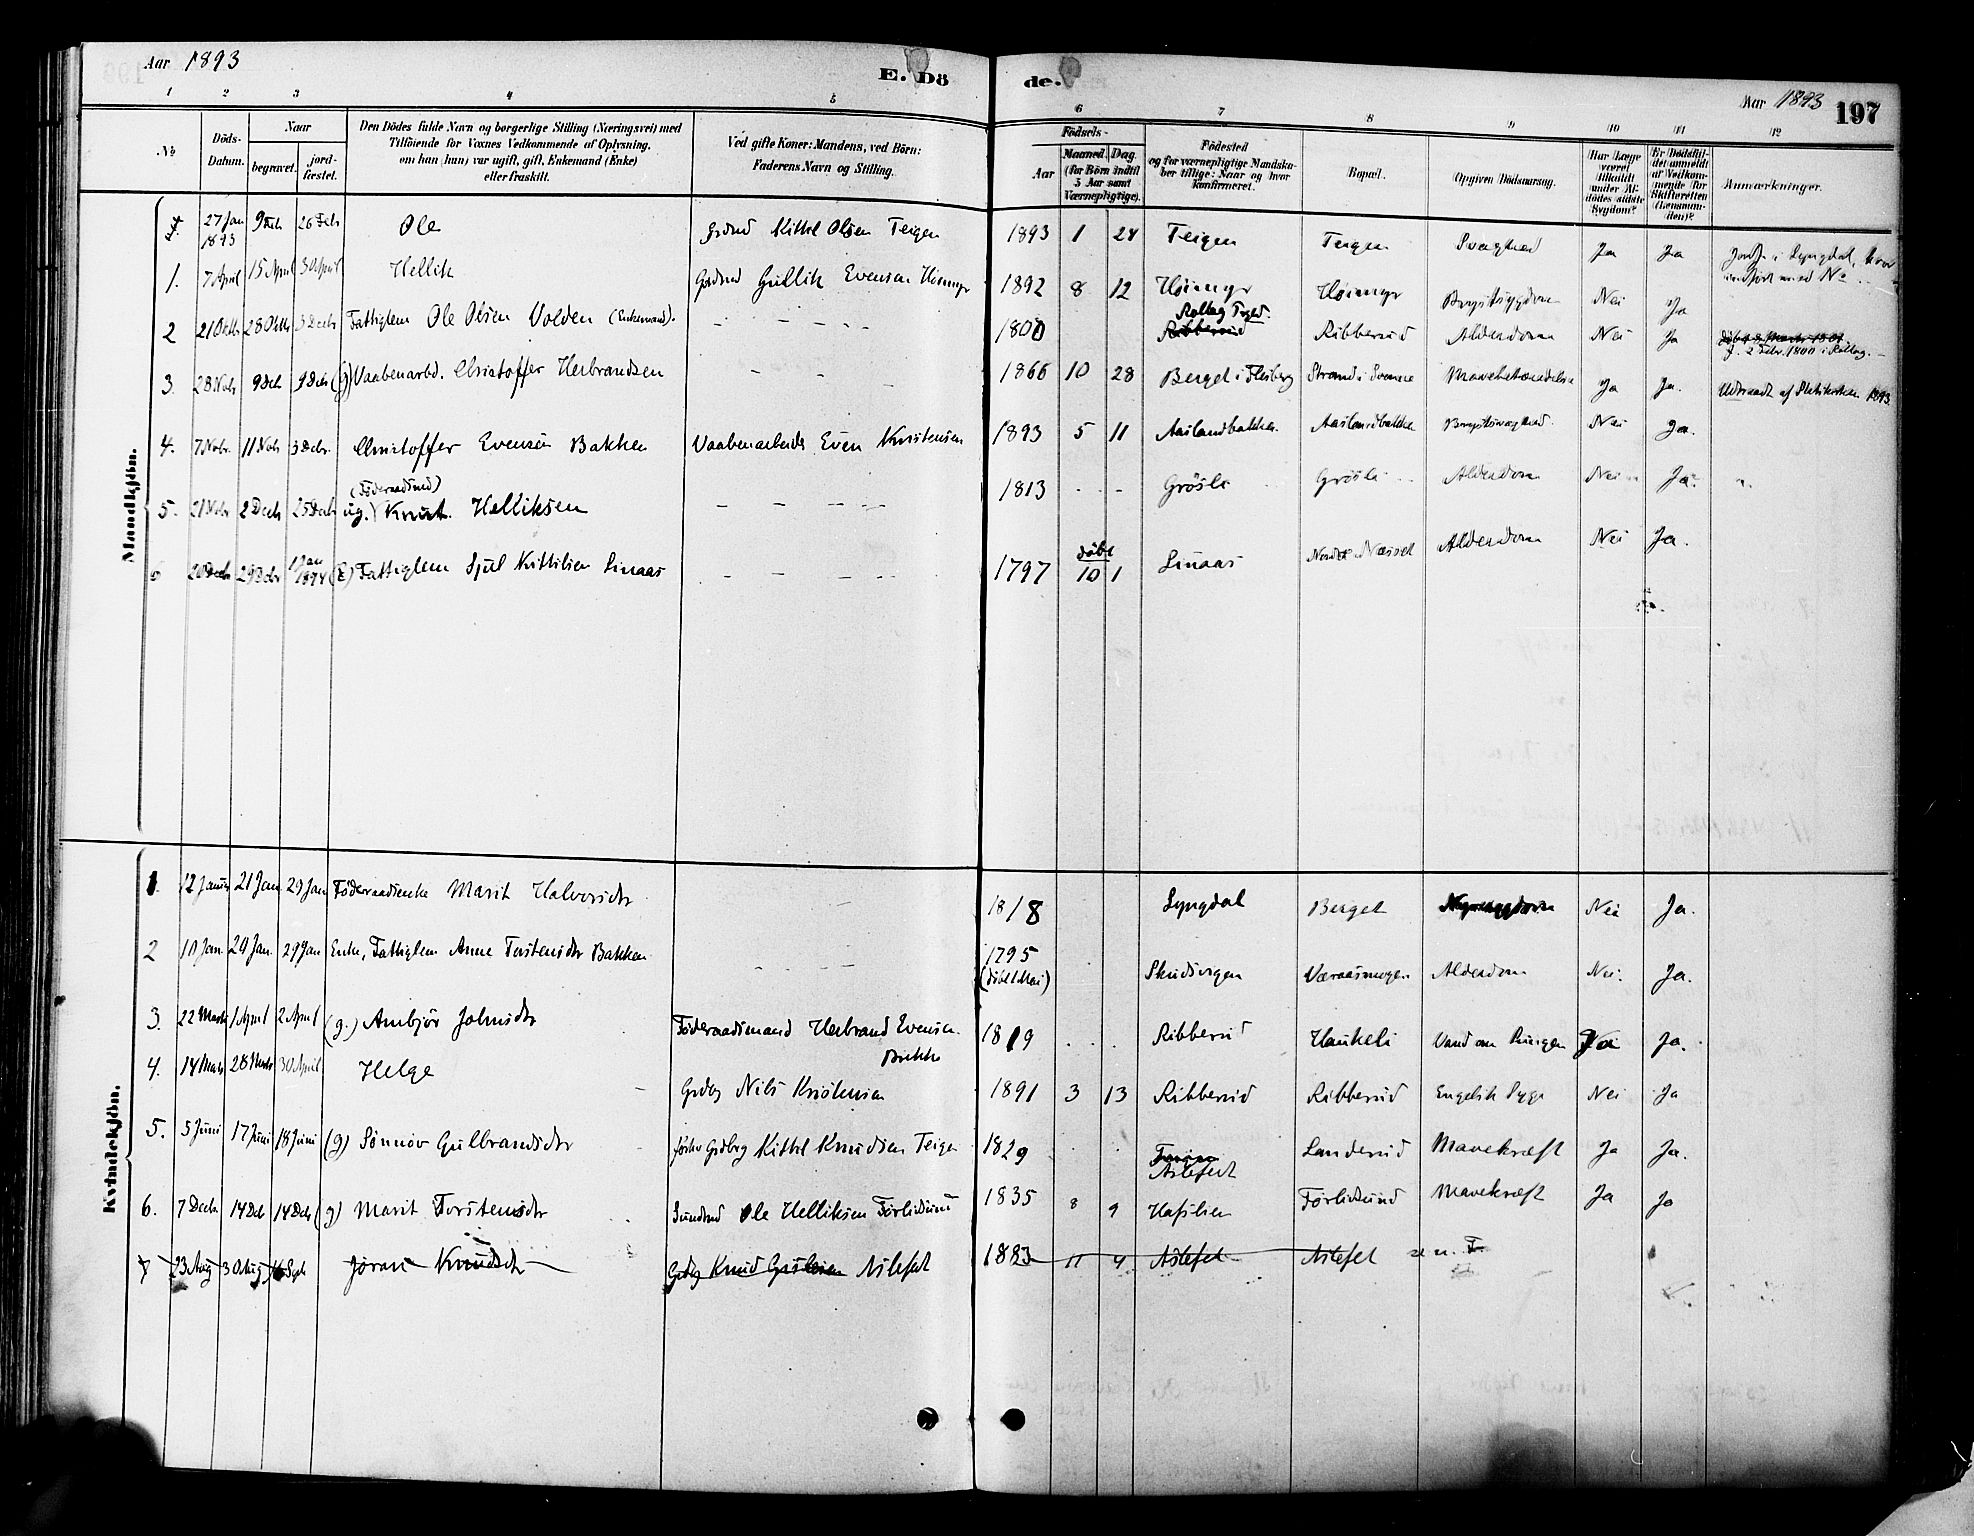 Aar 1893
E. Dö de.
Aar 1893
197
1 2 3 4 5 6 7 8 9 10 11 12
No
Döds-Datum.
Naar
begravet.
jord-fæstet.
Den Dödes fulde Navn og borgerlige Stilling (Næringsvei) med
Tilföiende for Voxnes Vedkommende af Oplysning,
om han (hun) var ugift, gift, Enkemand (Enke)
eller fraskilt.
Ved gifte Koner: Mandens, ved Börn:
Faderens Navn og Stilling.
Födsels-
Aar
Maaned. Dag
(for Börn indtil
5 Aar samt
Værnepligtige).
Födested
og for værnepligtige Mandskaber tillige: Naar og hvor
konfirmeret.
Bopæl.
Opgiven Dödsaarsag.
Har Læge været tilkaldt under Afdödes sidste Sygdom?
Er Dödsfaldet anmeldt af Vedkommende for Skifteretten (Lensmanden)?
Anmærkninger.
Mandkjön.
27 Jan 1893 9 Feb 26 Feb Ole Grdmd Kittel Olsen Teigen 1893 1 24 Teigen Teigen Svaghed Ja Ja
1. 7 April 15 April 30 April Hellik Gaardmd Gullik Evensen Høimyr 1892 8 12 Høimyr Høimyr Brystsygdom Nei Ja
2 21 Octbr 28 Octbr 3 Decbr Fattiglem Ole Olsen Volden (Enkemand). 1800 Rollag Prgld. Ribberud Ribberud Alderdom Nei Ja
f. 2 Febr. 1800 i Rollag.
3. 28 Nobr 9 Dcb 9 Dcb (g) Vaabenarbd. Christoffer Herbrandsen 1866 10 28 Berget i Flesberg Strand i Svene Mavebetændelse Ja Ja. Udtraadt af Statskirken 1893.
4. 7 Nobr. 11 Nobr 3 Decbr. Christoffer Evensen Bakken Vaabenarbeider Even Kristensen 1893 5 11 Aaslandbakken Aaslandbakken Brystsvaghed. Nei Ja.
(Föderaadsmd)
5. 21 Nobr 2 Decb 25 Decb ug.) Knut Helliksen 1813 Grösli Grösli Alderdom Nei Ja.
6 20 Decb 29 Decbr 1 Jan 1894 (E) Fattiglem Sjul Kittilsen Linaas 1797 döbt 10 1 Linaas Nordre Næsset Alderdom Nei Ja.
Kvindekjön.
1. 12 Januar 21 Jan 29 Jan Föderaadsenke Marit Halvorsdtr 1818 Lyngdal Berget Nei Ja.
2 10 Jan. 20 Jan. 29 Jan Enke, Fattiglem Anne Torstensdtr Bakken 1795 (döbt 1 Mai) Skudsvigen Væraasmogen Alderdom Nei Ja.
3. 22 Marts 1 April 2 April (g.) Anbjör Johnsdtr Föderaadsmand Herbrand Evensen Brekke 1819 Ribberud Haukeli Vand om Lungen Ja.
4. 14 Marts 28 Marts 30 April Helge Grdbg Nils Kristensen 1891 3 13 Ribberud Ribberud Engelsk Syge Nei Ja
5. 5 Juni 17 Juni 18 Juni (g) Sønnøv Gulbrandsdtr Kittel Knudsen Teigen 1829 Aslefet Landerud Mavekræft Ja Ja.
6. 7 Decbr 14 Dcb 14 Dcb (g) Marit Torstensdtr Sundmd Ole Helliksen Förlisund 1835 8 9 Hafslien Förlisund Mavekræft Ja Ja
7 23 Aug 30 Aug Sept Jöran Knudsdtr Grdbg Knud Aslefet 1883 11 4 Aslefet Aslefet